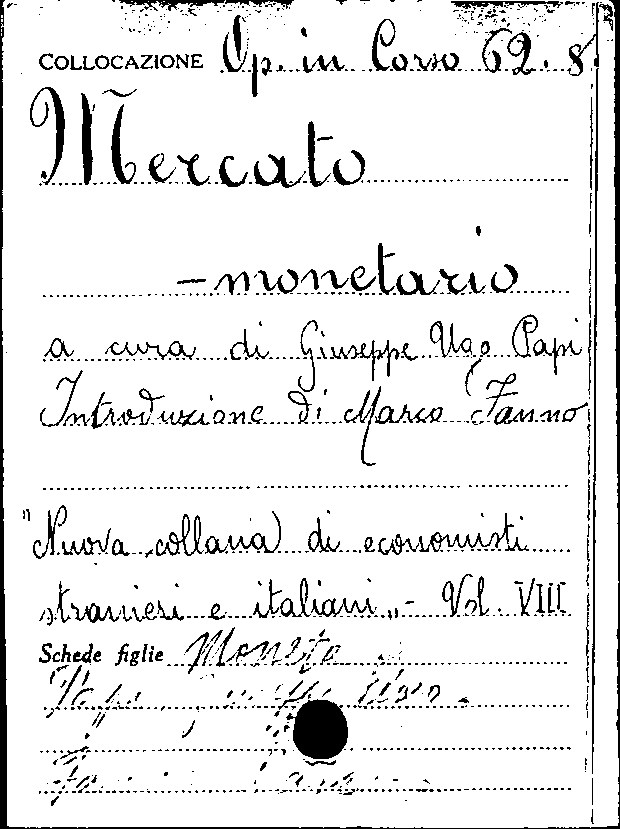 COLLOCAZIONE Op. in Corso 62.8.
Mercato
- monetario
a cura di Giuseppe Ugo Papi
Introduzione di Marco Fanno
"Nuova collana di economisti
stranieri e italiani„ - Vol. VIII
Schede figlie Moneta